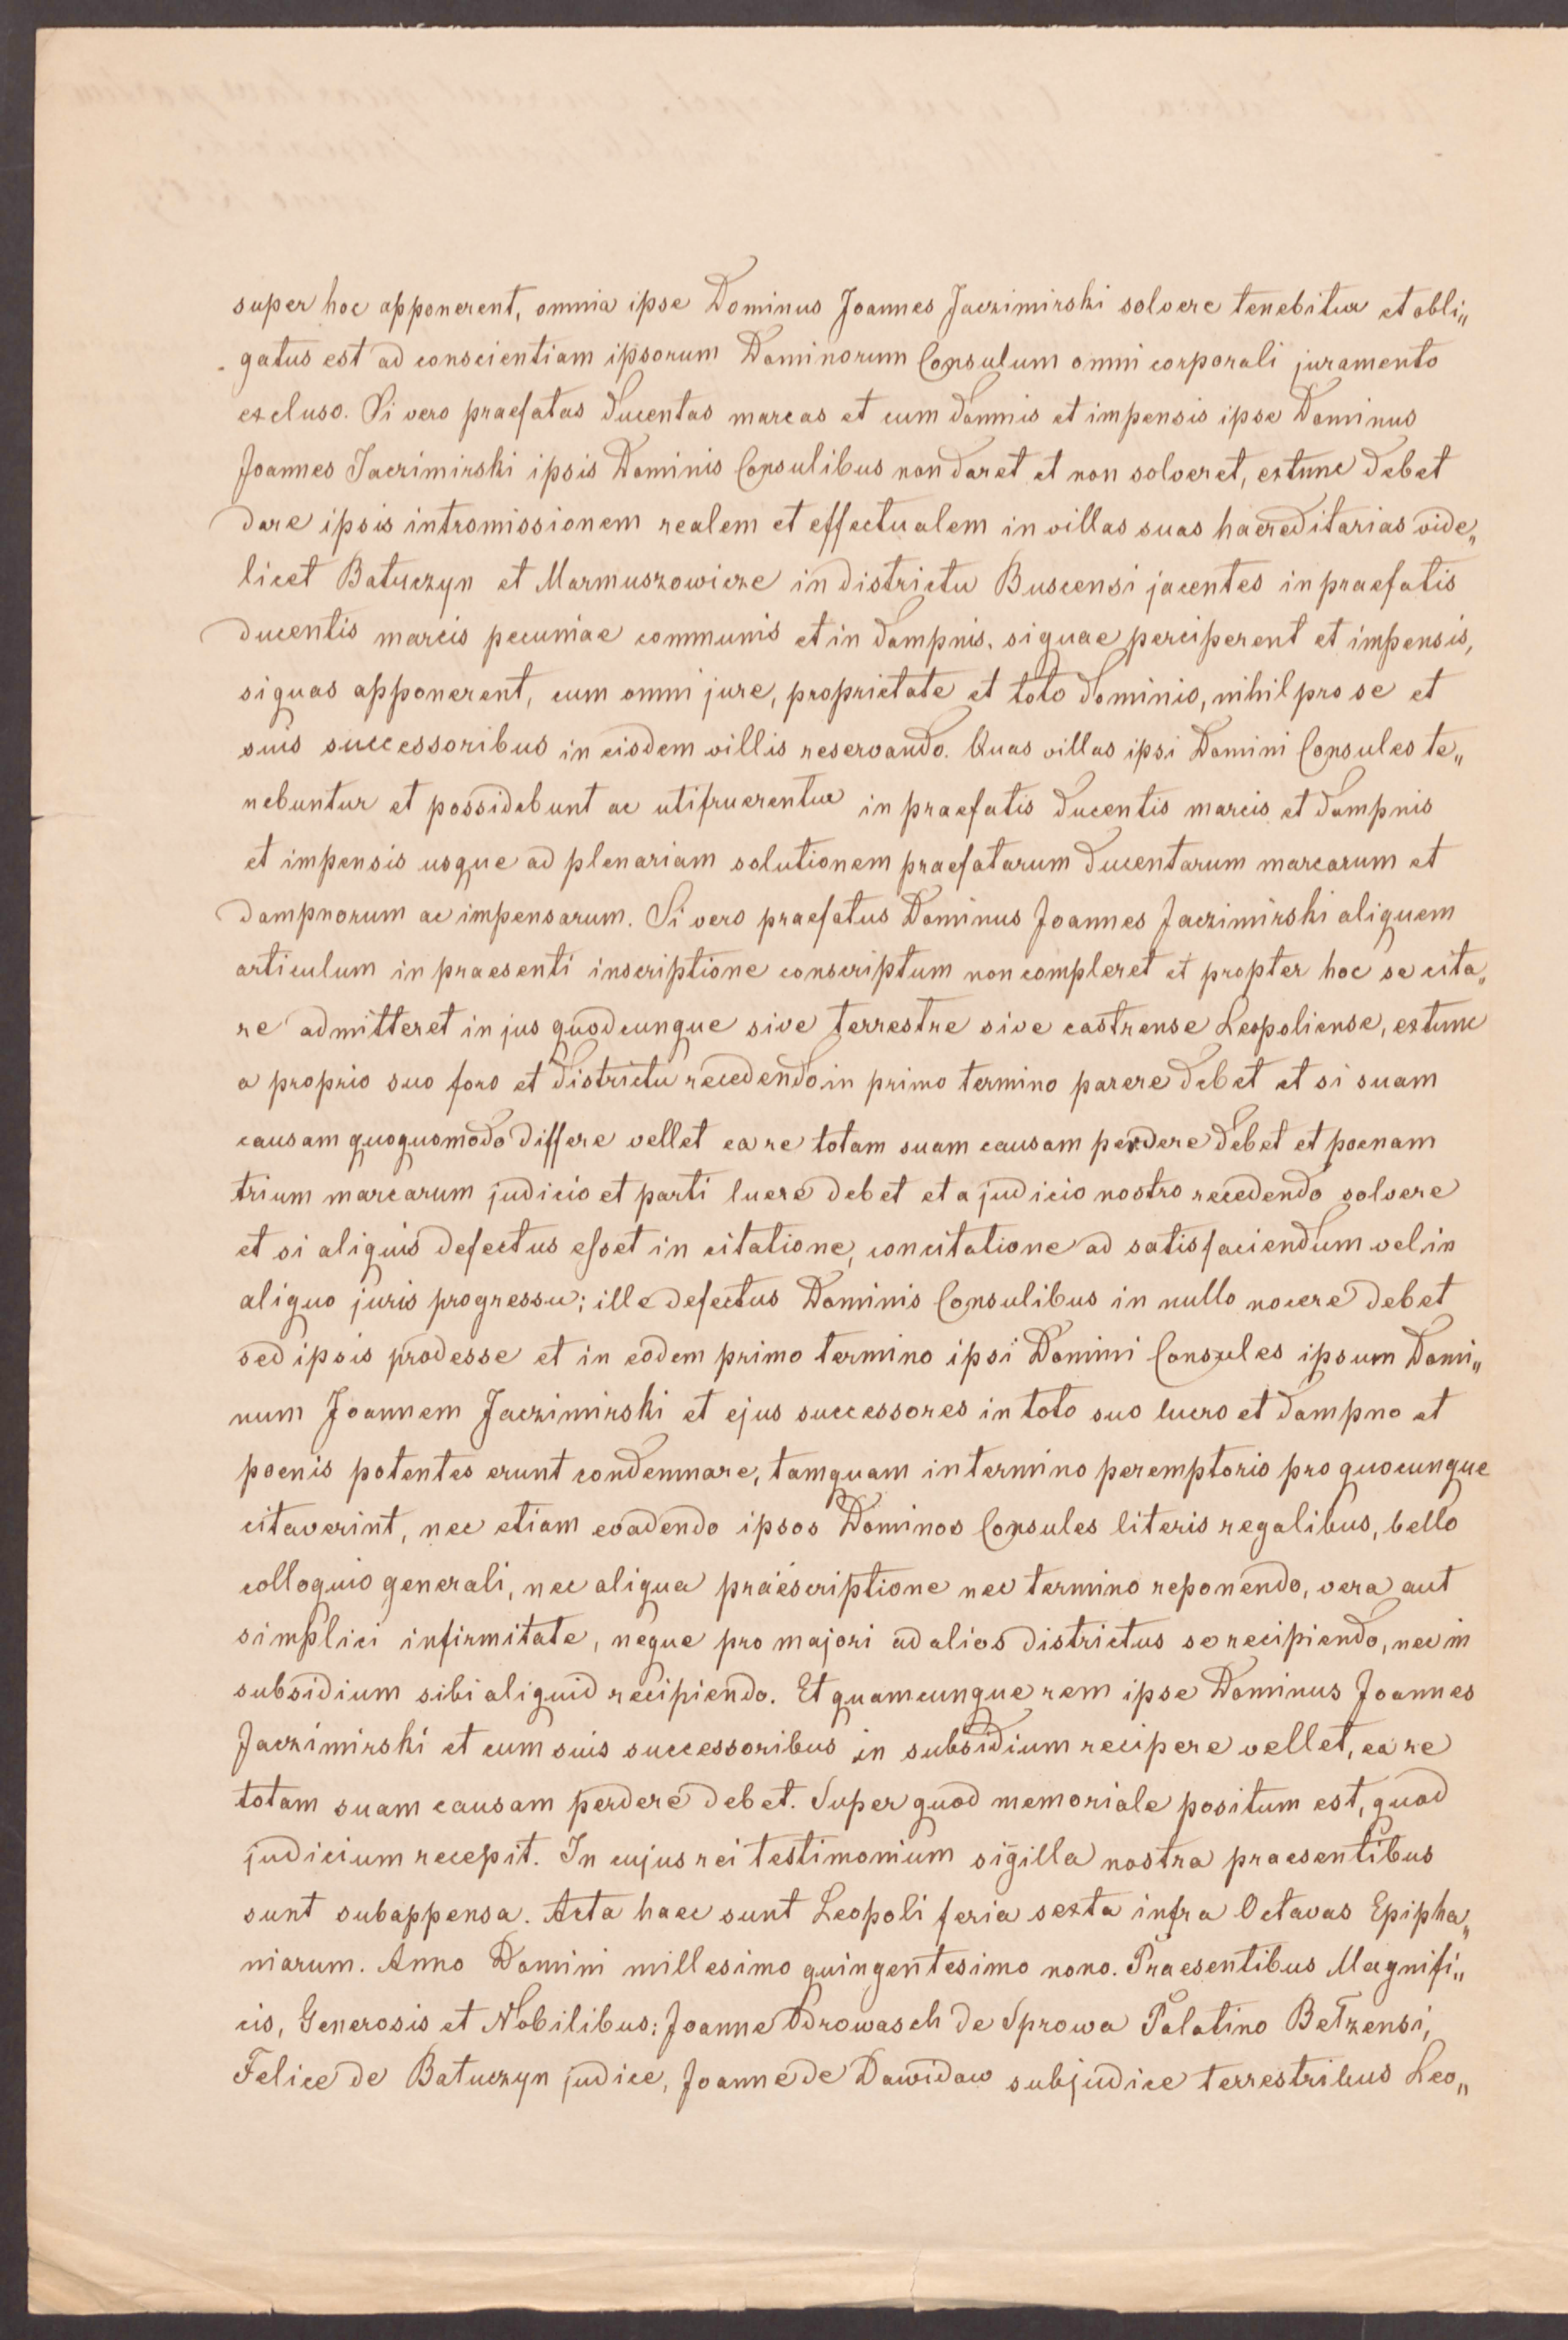 super hoc apponerent, omnia ipse Dominus Joannes Jaczimirski solvere tenebitur et obli„
gatus est ad conscientiam ipsorum Dominorum Consulum omni corporali juramento
excluso. Si vero praefatas ducentas marcas et cum damnis et impensis ipse Dominus
Joannes Jaczimirski ipsis Dominis Consulibus non daret et non solveret, extunc debet
dare ipsis intromissionem realem et effectualem in villas suas haereditarias vide„
licet Batuczyn et Marmuszowicze in districtu Buscensi jacentes in praefatis
ducentis marcis pecuniae communis et in dampnis, siquae perciperent et impensis,
siquas apponerent, cum omni jure, proprietate et toto dominio, nihil pro se et
suis successoribus in eisdem villis reservando. Quas villas ipsi Domini Consules te„
nebuntur et possidebunt ac utifruerentur in praefatis ducentis marcis et dampnis
et impensis usque ad plenariam solutionem praefatarum ducentarum marcarum et
dampnorum ac impensarum. Si vero praefatus Dominus Joannes Jaczimirski aliquem
articulum in praesenti inscriptione conscriptum non compleret et propter hoc se cita„
re admitteret in jus quodcunque sive terrestre sive castrense Leopoliense, extunc
a proprio suo foro et districtu recedendo in primo termino parere debet et si suam
causam quoquomodo differe vellet ea re totam suam causam perdere debet et poenam
trium marcarum judicio et parti luere debet et a judicio nostro recedendo solvere
et si aliquis defectus esset in citatione, concitatione ad satisfaciendum vel in
aliquo juris progressu; ille defectus Dominis Consulibus in nullo nocere debet
sed ipsis prodesse et in eodem primo termino ipsi Domini Consules ipsum Domi„
num Joannem Jaczimirski et ejus successores in toto suo lucro et dampno et
poenis potentes erunt condemnare, tamquam in termino peremptorio pro quocunque
citaverint, nec etiam evadendo ipsos Dominos Consules literis regalibus, bello
colloquio generali, nec aliqua praescriptione nec termino reponendo, vera aut
simplici infirmitate, neque pro majori ad alios districtus se recipiendo, nec in
subsidium sibi aliquid recipiendo. Et quamcunque rem ipse Dominus Joannes
Jaczimirski et cum suis successoribus in subsidium recipere vellet, ea re
totam suam causam perdere debet. Super quod memoriale positum est, quod
judicium recepit. In cujus rei testimonium sigilla nostra praesentibus
sunt subappensa. Acta haec sunt Leopoli feria sexta infra Octavas Epipha„
niarum. Anno Domini millesimo quingentesimo nono. Praesentibus Magnifi„
cis, Generosis et Nobilibus: Joanne Odrowasch de Sprowa Palatino Betzensi,
Felice de Batuczyn judice, Joanne de Dawidow subjudice terrestribus Leo„